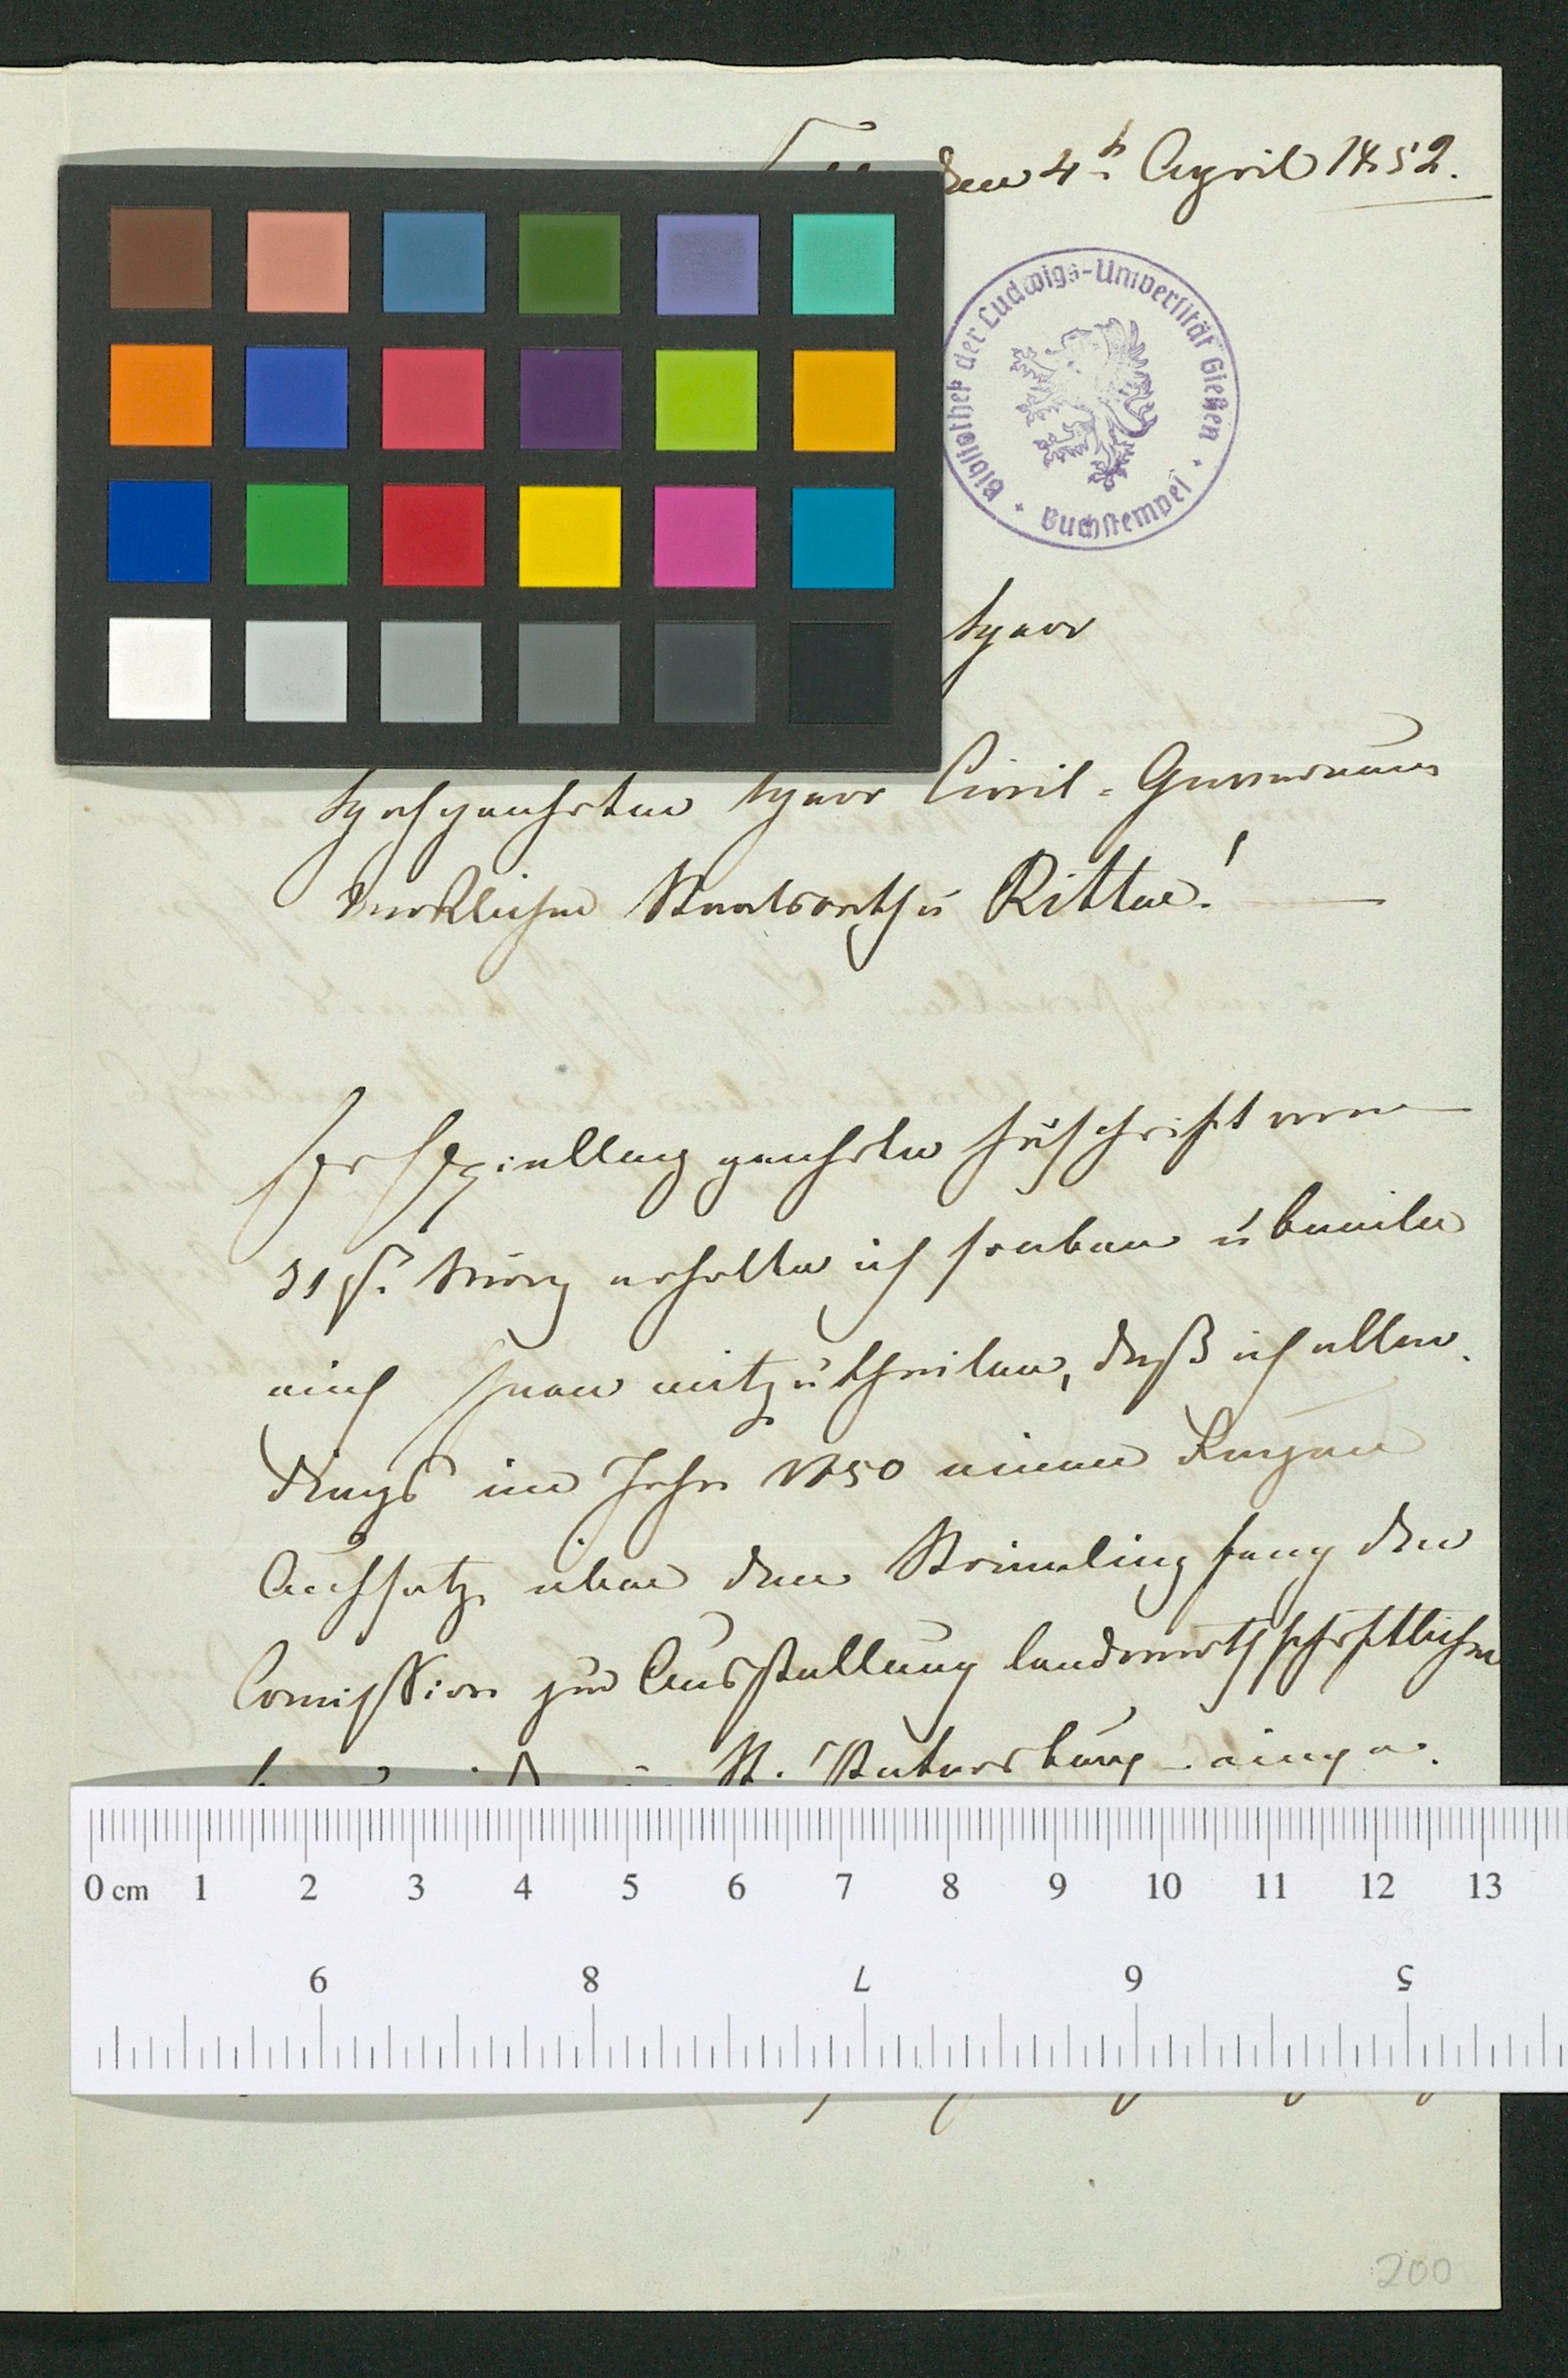 den 4t April 1852.
Bibliothek der Ludwigs-Universität Gießen
Buchstempel
Herr
Hochgeehrter Herr Civil-Gouverneur
Wirklicher Staatsrath u Ritter!
Exzellenz geehrte Zuschrift vom
31st. März erhalte ich soeben u beeile
mich Ihnen mitzutheilen, daß ich aller-
dings im Jahr 1850 einen kurzen
Aufsatz über den Strömlingsfang der
Comission zur Ausstellung landwirthschaftlicher
St. Petersburg einge-
0 cm 1 2 3 4 5 6 7 8 9 10 11 12 13
9 8 7 6 5
200